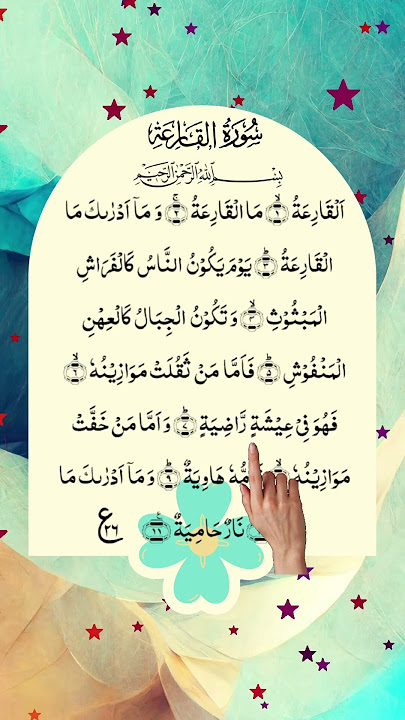 سُوْرَةُ الْقَارِعَة
بِسْمِ اللّٰهِ الرَّحْمٰنِ الرَّحِيْمِ
اَلْقَارِعَةُ ۙ﴿۱﴾ مَا الْقَارِعَةُ ۚ﴿۲﴾ وَ مَاۤ اَدْرٰىكَ مَا
الْقَارِعَةُ ؕ﴿۳﴾ يَوْمَ يَكُوْنُ النَّاسُ كَالْفَرَاشِ
الْمَبْثُوْثِ ۙ﴿۴﴾ وَ تَكُوْنُ الْجِبَالُ كَالْعِهْنِ
الْمَنْفُوْشِ ؕ﴿۵﴾ فَاَمَّا مَنْ ثَقُلَتْ مَوَازِيْنُهٗ ۙ﴿۶﴾
فَهُوَ فِيْ عِيْشَةٍ رَّاضِيَةٍ ؕ﴿۷﴾ وَ اَمَّا مَنْ خَفَّتْ
مَوَازِيْنُهٗ ۙ﴿۸﴾ هَاوِيَةٌ ؕ﴿۹﴾ وَ مَاۤ اَدْرٰىكَ مَا
نَارٌ حَامِيَةٌ ﴿۱۱﴾ ع ۲۶